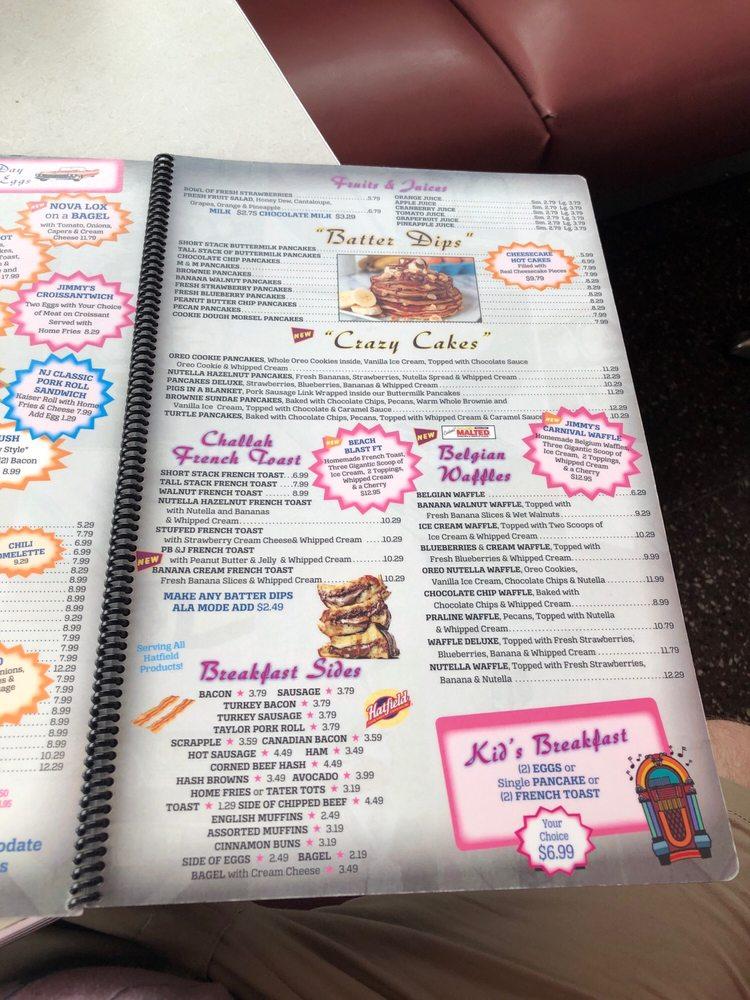 Day
Eggs
NOVA LOX
on a BAGEL
with Tomato, Onions,
Capers & Cream
Cheese 11.79
17.99
JIMMY'S
CROISSANTWICH
Two Eggs with Your Choice
of Meat on Croissant
Served with
Home Fries 8.29
NJ CLASSIC
PORK ROLL
SANDWICH
Kaiser Roll with Home
Fries & Cheese 7.99
Add Egg 1.29
Style"
(2) Bacon
8.99
5.29
7.79
6.99
6.99
7.99
8.29
CHILI
OMELETTE
9.29
8.99
8.99
9.29
8.99
8.99
7.99
7.99
12.29
7.99
7.99
7.99
8.99
8.99
8.99
10.29
12.29
Fruits & Juices
BOWL OF FRESH STRAWBERRIES 5.79
FRESH FRUIT SALAD, Honey Dew, Cantaloupe,
Grapes, Orange & Pineapple 6.79
MILK $2.75 CHOCOLATE MILK $3.29
ORANGE JUICE Sm. 2.79 Lg. 3.79
APPLE JUICE Sm. 2.79 Lg. 3.79
CRANBERRY JUICE Sm. 2.79 Lg. 3.79
TOMATO JUICE Sm. 2.79 Lg. 3.79
GRAPEFRUIT JUICE Sm. 2.79 Lg. 3.79
PINEAPPLE JUICE Sm. 2.79 Lg. 3.79
"Batter Dips"
SHORT STACK BUTTERMILK PANCAKES 5.99
TALL STACK OF BUTTERMILK PANCAKES 6.99
CHOCOLATE CHIP PANCAKES 7.99
M & M PANCAKES 7.99
BROWNIE PANCAKES 8.29
BANANA WALNUT PANCAKES 8.29
FRESH STRAWBERRY PANCAKES 8.29
FRESH BLUEBERRY PANCAKES 8.29
PEANUT BUTTER CHIP PANCAKES 8.29
PECAN PANCAKES 7.99
COOKIE DOUGH MORSEL PANCAKES 7.99
CHEESECAKE
HOT CAKES
Filled with
Real Cheesecake Pieces
$9.79
NEW
"Crazy Cakes"
OREO COOKIE PANCAKES, Whole Oreo Cookies inside, Vanilla Ice Cream, Topped with Chocolate Sauce
Oreo Cookie & Whipped Cream 11.29
NUTELLA HAZELNUT PANCAKES, Fresh Bananas, Strawberries, Nutella Spread & Whipped Cream 12.29
PANCAKES DELUXE, Strawberries, Blueberries, Bananas & Whipped Cream 10.29
PIGS IN A BLANKET, Pork Sausage Link Wrapped inside our Buttermilk Pancakes 11.29
BROWNIE SUNDAE PANCAKES, Baked with Chocolate Chips, Pecans, Warm Whole Brownie and
Vanilla Ice Cream, Topped with Chocolate & Caramel Sauce 12.29
TURTLE PANCAKES, Baked with Chocolate Chips, Pecans, Topped with Whipped Cream & Caramel Sauce 10.29
Challah
French Toast
NEW
BEACH
BLAST FT
Homemade French Toast,
Three Gigantic Scoop of
Ice Cream, 2 Toppings,
Whipped Cream
& a Cherry
$12.95
SHORT STACK FRENCH TOAST 6.99
TALL STACK FRENCH TOAST 7.99
WALNUT FRENCH TOAST 8.99
NUTELLA HAZELNUT FRENCH TOAST
with Nutella and Bananas
& Whipped Cream 10.29
STUFFED FRENCH TOAST
with Strawberry Cream Cheese& Whipped Cream 10.29
PB &J FRENCH TOAST
NEW with Peanut Butter & Jelly & Whipped Cream 10.29
BANANA CREAM FRENCH TOAST
Fresh Banana Slices & Whipped Cream 10.29
MAKE ANY BATTER DIPS
ALA MODE ADD $2.49
NEW
MALTED
Belgian
Waffles
NEW
JIMMY'S
CARNIVAL WAFFLE
Homemade Belgium Waffle,
Three Gigantic Scoop of
Ice Cream, 2 Toppings,
Whipped Cream
& a Cherry
$12.95
BELGIAN WAFFLE 6.29
BANANA WALNUT WAFFLE, Topped with
Fresh Banana Slices & Wet Walnuts 9.29
ICE CREAM WAFFLE, Topped with Two Scoops of
Ice Cream & Whipped Cream 10.29
BLUEBERRIES & CREAM WAFFLE, Topped with
Fresh Blueberries & Whipped Cream 9.99
OREO NUTELLA WAFFLE, Oreo Cookies,
Vanilla Ice Cream, Chocolate Chips & Nutella 11.99
CHOCOLATE CHIP WAFFLE, Baked with
Chocolate Chips & Whipped Cream 8.99
PRALINE WAFFLE, Pecans, Topped with Nutella
& Whipped Cream 10.79
WAFFLE DELUXE, Topped with Fresh Strawberries,
Blueberries, Banana & Whipped Cream 11.79
NUTELLA WAFFLE, Topped with Fresh Strawberries,
Banana & Nutella 12.29
Serving All
Hatfield
Products!
Breakfast Sides
Hatfield
BACON ★ 3.79 SAUSAGE ★ 3.79
TURKEY BACON ★ 3.79
TURKEY SAUSAGE ★ 3.79
TAYLOR PORK ROLL ★ 3.79
SCRAPPLE ★ 3.59 CANADIAN BACON ★ 3.59
HOT SAUSAGE ★ 4.49 HAM ★ 3.49
CORNED BEEF HASH ★ 4.49
HASH BROWNS ★ 3.49 AVOCADO ★ 3.99
HOME FRIES or TATER TOTS ★ 3.19
TOAST ★ 1.29 SIDE OF CHIPPED BEEF ★ 4.49
ENGLISH MUFFINS ★ 2.49
ASSORTED MUFFINS ★ 3.19
CINNAMON BUNS ★ 3.19
SIDE OF EGGS ★ 2.49 BAGEL ★ 2.19
BAGEL with Cream Cheese ★ 3.49
Kid's Breakfast
(2) EGGS or
Single PANCAKE or
(2) FRENCH TOAST
Your
Choice
$6.99